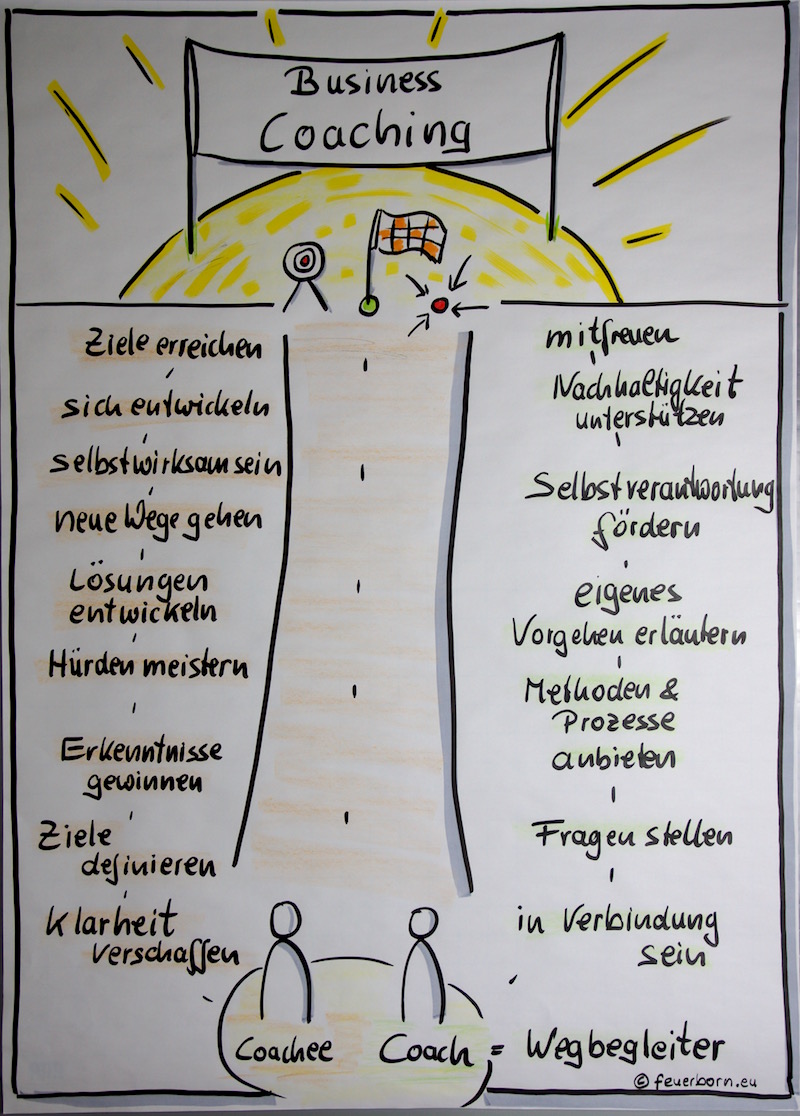 Business
Coaching
Ziele erreichen
sich entwickeln
selbstwirksam sein
neue Wege gehen
Lösungen
entwickeln
Hürden meistern
Erkenntnisse
gewinnen
Ziele
definieren
Klarheit
verschaffen
mitfreuen
Nachhaltigkeit
unterstützen
Selbstverantwortung
fördern
eigenes
Vorgehen erläutern
Methoden &
Prozesse
anbieten
Fragen stellen
in Verbindung
sein
Coachee
Coach = Wegbegleiter
© feuerborn.eu